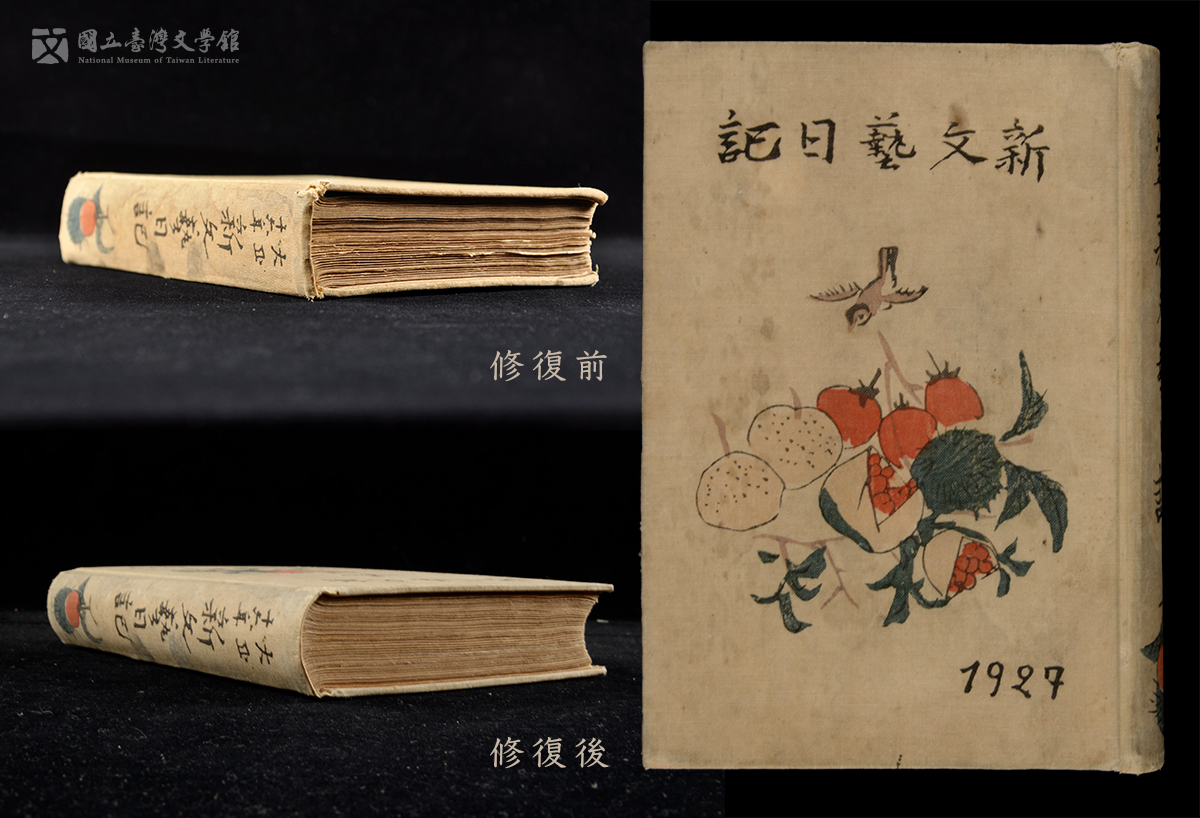 國立臺灣文學館
National Museum of Taiwan Literature
大正
十六年
新文藝日記
修復前
大正
十六年
新文藝日記
修復後
新文藝日記
1927